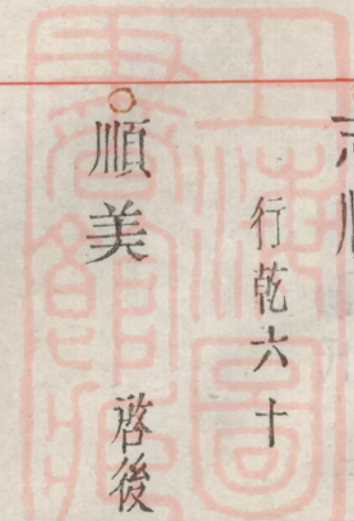 行乾六十
順美 啓後